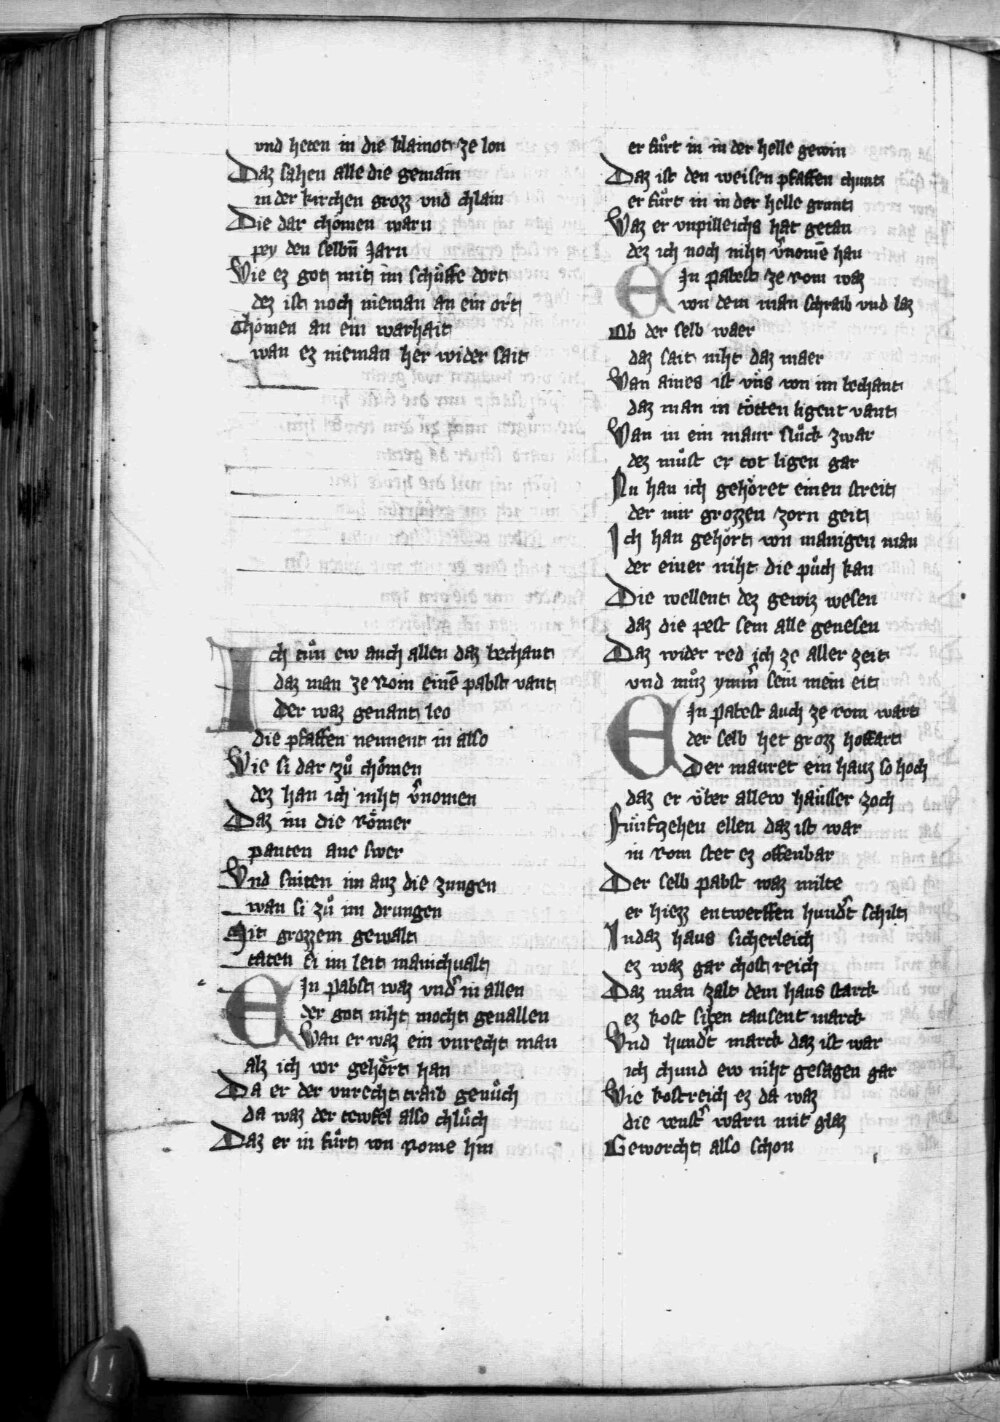 vnd heten in die klainot ze lon
Daz sahen alle die gemain
in der kirchen grozz vnd chlain
Die dar chomen warn
pey den selbn̄ Jarn
Wie ez got mit im schůffe dort
dez ist noch nieman an ein ort
Chomen an ein warhait
wan ez nieman her wider sait
Ich tůn ew auch allen daz bechant
daz man ze Rom einē pabst vant
Der waz genant leo
die pfaffen nennent in also
Wie si dar zů chomen
dez han ich niht v̄nomen
Daz im die Römer
panten ane swer
Vnd sniten im auz die zungen
wan si zů im drungen
Mit grozzem gewalt
taten si im leit manichualt
Ein pabst waz vndˢ in allen
der got niht mocht geuallen
Wan er waz ein vnrecht man
alz ich vor gehört han
Da er der vnrecht traib genůch
da waz der tewfel also chlůch
Daz er in fůrt von Rome hin
er fůrt in in der helle gewin
Daz ist den weisen pfaffen chunt
er fůrt in in der helle grunt
Waz er vnpilleichs hat getan
dez ich noch niht v̄nomē han
Ein pabest ze rom waz
von dem man schraib vnd laz
Ob der selb waer
daz sait niht daz maer
Wan aines ist vns von im bechant
daz man in tötten ligent vant
Wan in ein maur slůch zwar
dez můst er tot ligen gar
Nu han ich gehöret einen streit
der mir grozzen zorn geit
Ich han gehört von manigen man
der einer niht die půch kan
Die wellent dez gewiz wesen
daz die pest sein alle genesen
Daz wider red ich ze aller zeit
vnd můz ym̄ sein mein eit
Ein pabest auch ze rom wart
der selb het grozz hoffart
Der mauret ein hauz so hoch
daz er vber allew haüsser zoch
Fünfzehen ellen daz ist war
in rom stet ez offenbar
Der selb pabst waz milte
er hiezz entwerffen hundˢt schilt
In daz haus sicherleich
ez waz gar chostreich
Daz man zalt dem haus starck
ez kost siben tausent marck
Vnd hundˢt marck daz ist war
ich chund ew niht gesagen gar
Wie kostreich ez da waz
die venstˢ warn mit glaz
Geworcht also schon